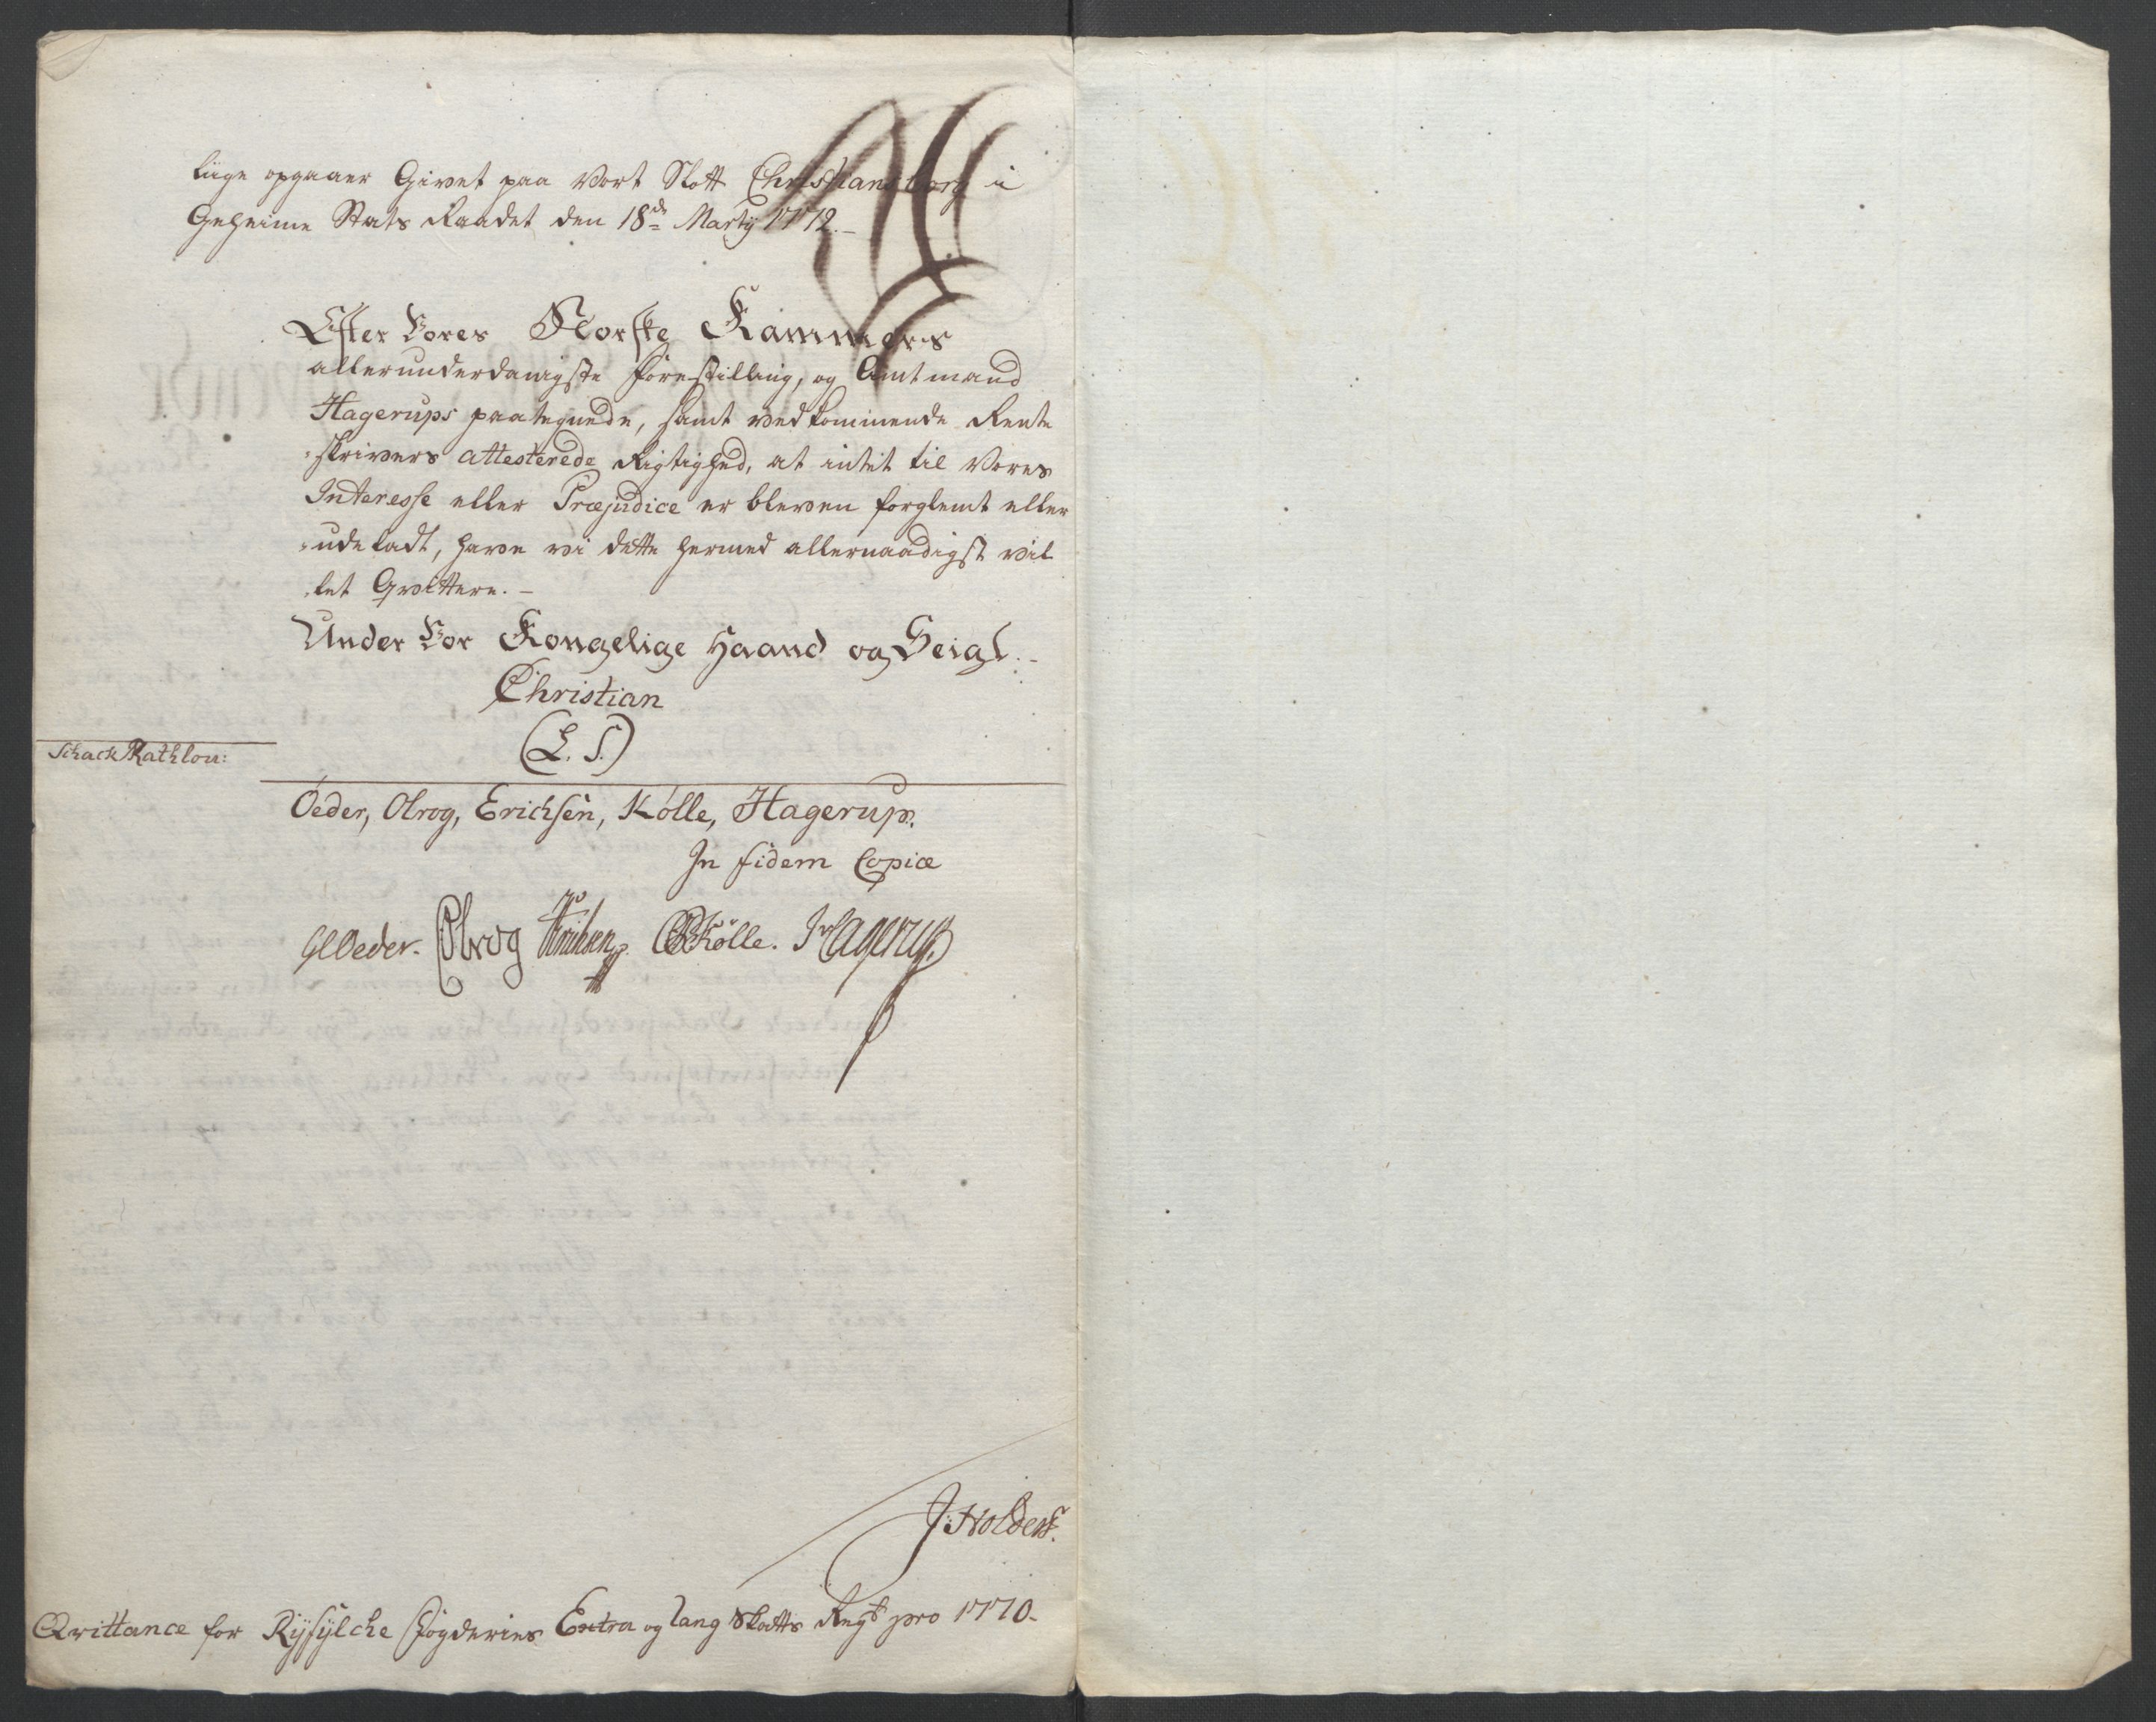 liige opgaaer Givet paa Vort Slott Christiansborg i
Geheime Stats Raadet den 18de Martij 1772.
Efter Vores Norske Kammers
allerunderdanigste Forestilling, og Amtmand
Hagerups paategnede, samt vedkommende Rente
skrivers attesterede Rigtighed, at intet til Vores
Interesse eller Præjudice er bleven forglemt eller
udeladt, have vi dette hermed allernaadigst vil
let Qvittere.
Under Vor Kongelige Haand og Seigl.
Christian
(L. S.)
Schack Rathlou:
Oeder, Olrog, Erichsen, Kölle, Hagerup.
In fidem Copiæ
Oeder. Olrog Erichsen. Kölle. Hagerup.
J: Holders.
Qvittance for Ryfylche Fogderies Extra og lang Skatts Regsk pro 1770.